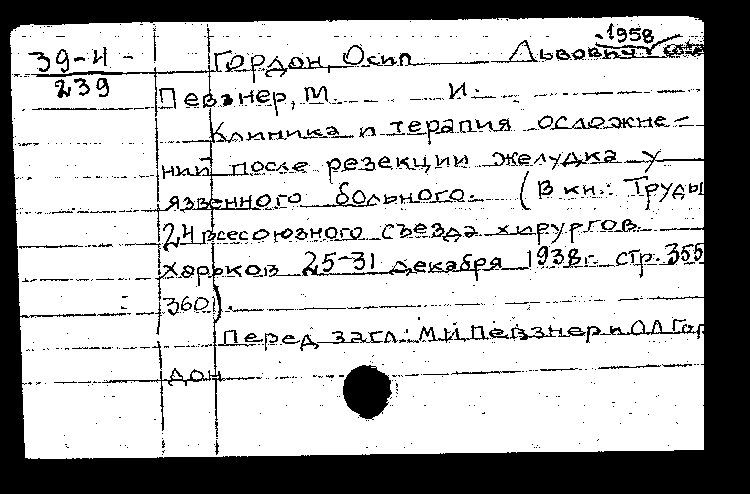 1958
39-4- Гордон, Осип Львович
239
Певзнер, М. И.
Клиника и терапия осложне-
ний после резекции желудка у
язвенного больного. (В кн.: Труды
24 всесоюзного съезда хирургов.
Харьков 25-31 декабря 1938г. стр. 355
360).
Перед загл.: М И Певзнер и О Л Гор
дон